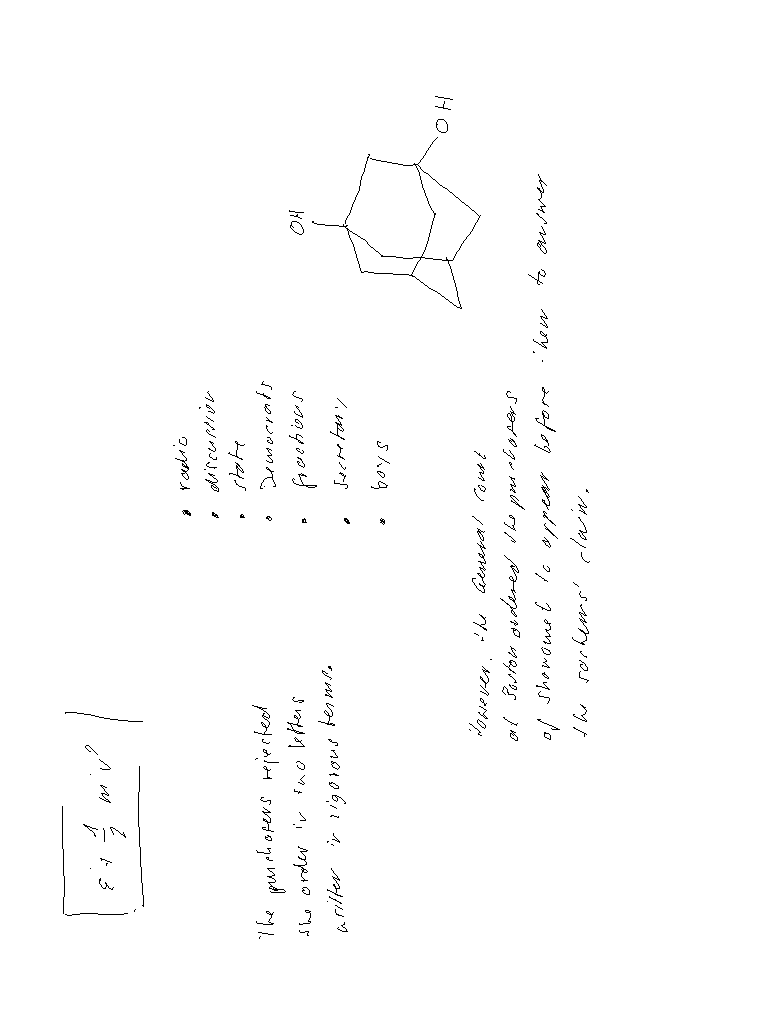 ε + 1/2 m v²
The purchasers rejected
the order in two letters
written in vigorous terms.
• radio
• discussion
• state
• Democrats
• fractions
• Secretary
• boys
OH
OH
However, the General Court
at Boston ordered the purchasers
of Showomet to appear before them to answer
the sachems' claim.